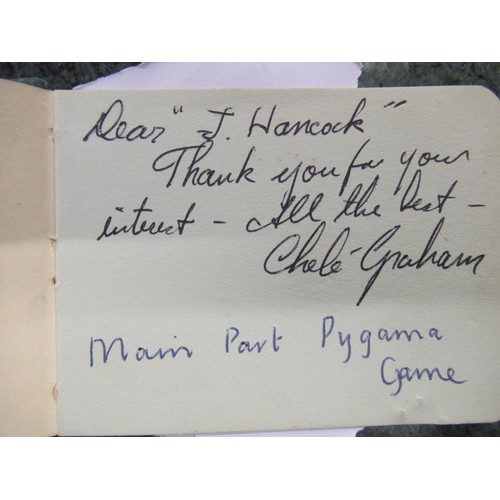 Dear "J. Hancock"
Thank you for your
interest - All the best -
Chelé Graham
Main Part Pygama
Game